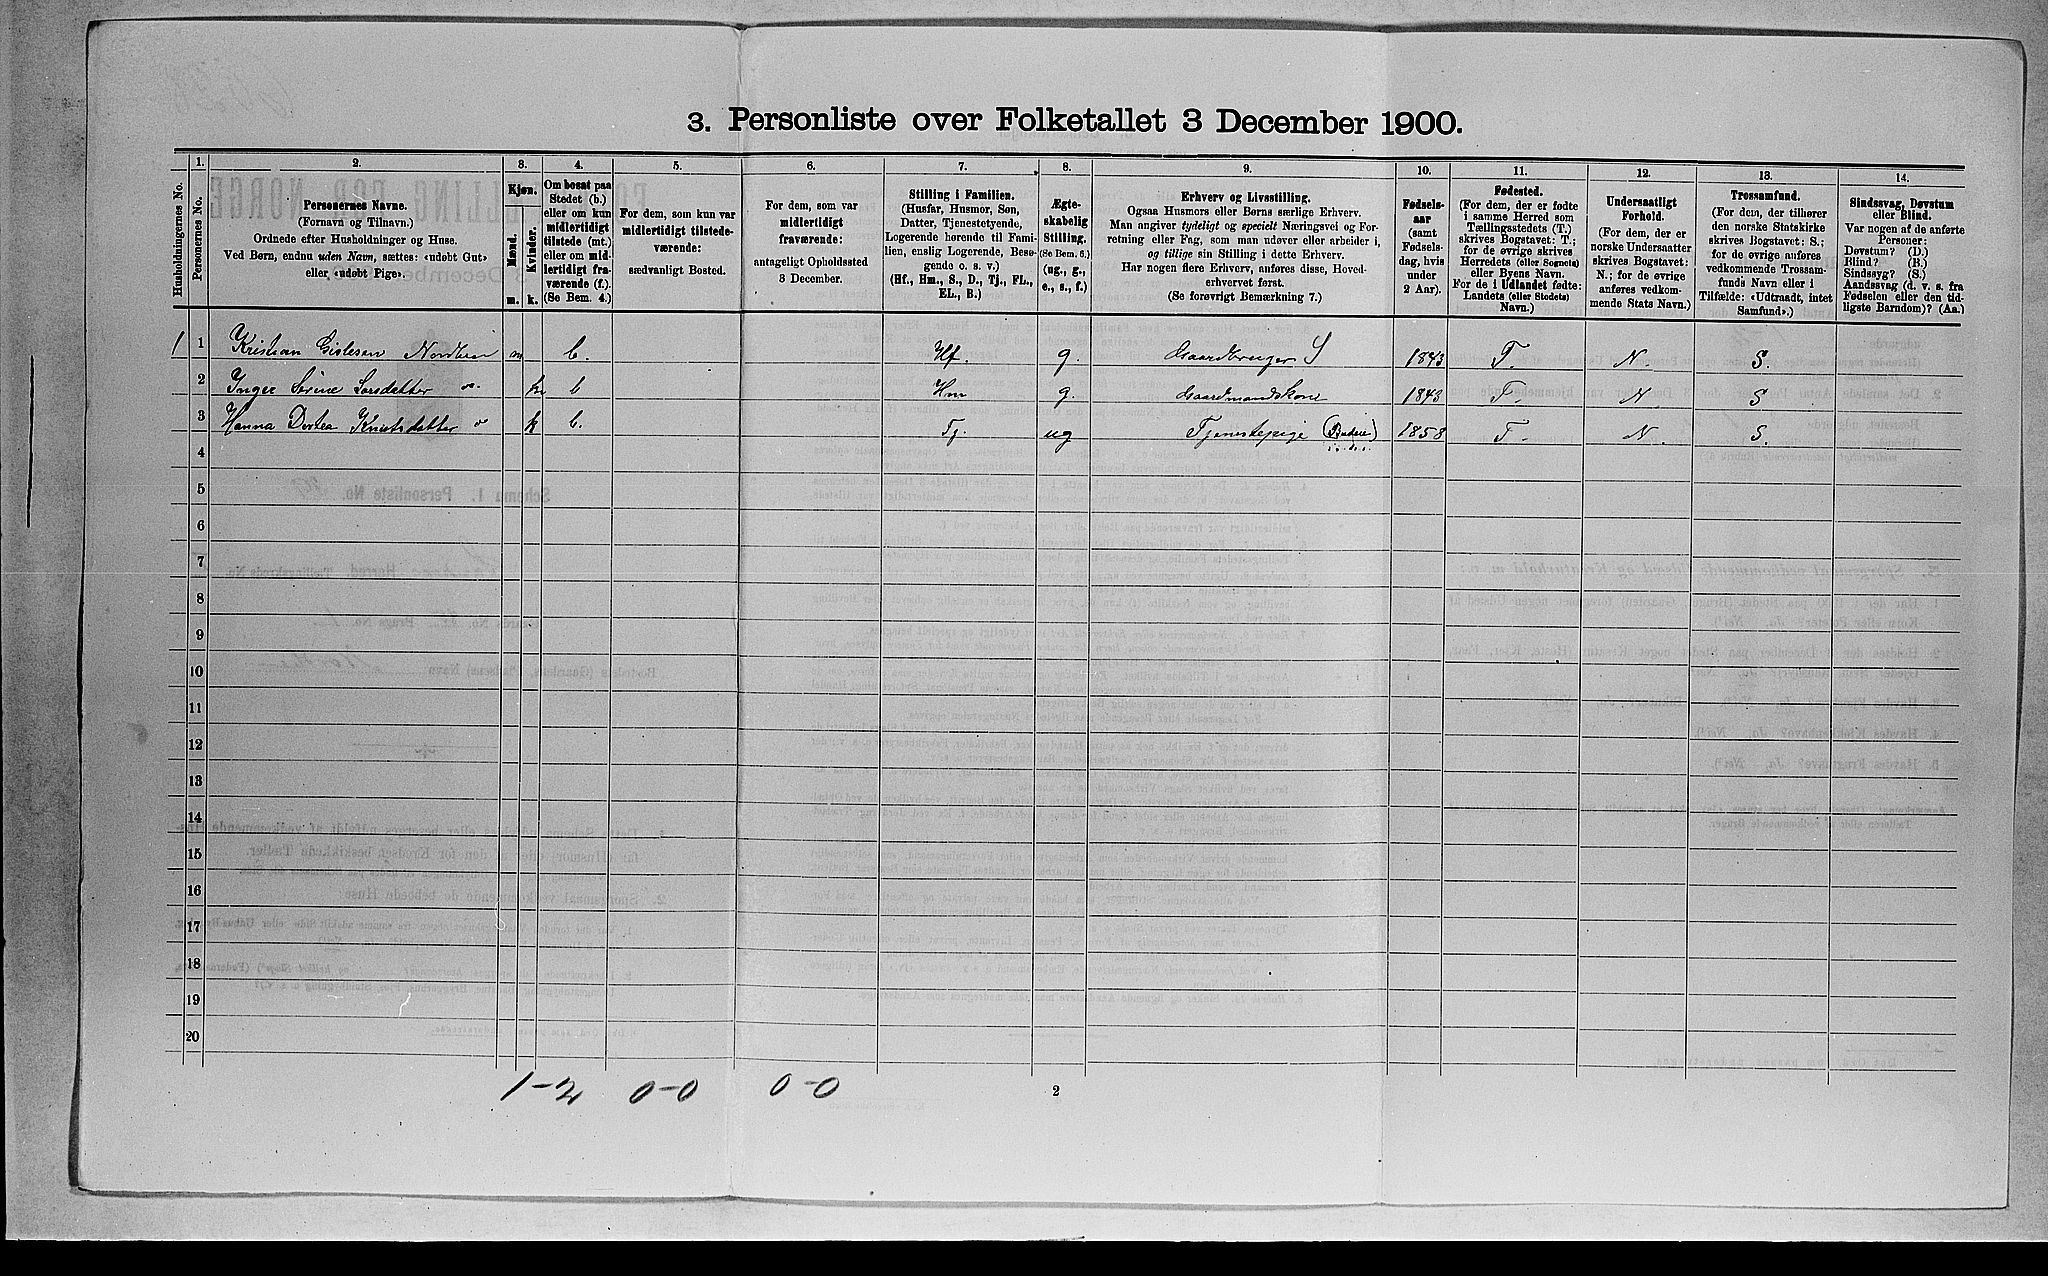 3. Personliste over Folketallet 3 December 1900.
Husholdningernes No.
1.
Personernes No.
2.
Personernes Navne.
(Fornavn og Tilnavn.)
Ordnede efter Husholdninger og Huse.
Ved Børn, endnu uden Navn, sættes: «udøbt Gut»
eller, «udøbt Pige».
3.
Kjøn.
Mænd.
Kvinder.
m. k.
4.
Om bosat paa
Stedet (b.)
eller om kun
midlertidigt
tilstede (mt.)
eller om mid-
lertidigt fra-
værende (f.).
(Se Bem. 4.)
5.
For dem, som kun var
midlertidigt tilstede-
værende:
sædvanligt Bosted.
6.
For dem, som var
midlertidigt
fraværende:
antageligt Opholdssted
3 December.
7.
Stilling i Familien.
(Husfar, Husmor, Søn,
Datter, Tjenestetyende,
Logerende hørende til Fami-
lien, enslig Logerende, Besø-
gende o. s. v.)
(Hf., Hm., S., D., Tj., FL.,
EL., B.)
8.
Ægte-
skabelig
Stilling.
(Se Bem. 6.)
(ug., g.,
e., s., f.)
9.
Erhverv og Livsstilling.
Ogsaa Husmors eller Børns særlige Erhverv.
Man angiver tydeligt og specielt Næringsvei og For-
retning eller Fag, som man udøver eller arbeider i,
og tillige sin Stilling i dette Erhverv.
Har nogen flere Erhverv, anføres disse, Hoved-
erhvervet først.
(Se forøvrigt Bemærkning 7.)
10.
Fødsels-
aar
(samt
Fødsels-
dag, hvis
under
2 Aar).
11.
Fødested.
(For dem, der er fødte
i samme Herred som
Tællingsstedets (T.)
skrives Bogstavet: T.;
for de øvrige skrives
Herredets (eller Sognets)
eller Byens Navn.
For de i Udlandet fødte:
Landets (eller Stedets)
Navn.)
12.
Undersaatligt
Forhold.
(For dem, der er
norske Undersaatter
skrives Bogstavet:
N.; for de øvrige
anføres vedkom-
mende Stats Navn.)
13.
Trossamfund.
(For dem, der tilhører
den norske Statskirke
skrives Bogstavet: S.;
for de øvrige anføres
vedkommende Trossam-
funds Navn eller i
Tilfælde: «Udtraadt, intet
Samfund».)
14.
Sindssvag, Døvstum
eller Blind.
Var nogen af de anførte
Personer:
Døvstum? (D.)
Blind? (B.)
Sindssyg? (S.)
Aandssvag (d. v. s. fra
Fødselen eller den tid-
ligste Barndom)? (Aa.)
1 1 Kristian Gislesen m. b. Hf. g. Gaardbruger S 1843 T. N. S.
2 Inger Serine Larsdatter k b Hm g. Gaardmandskone 1843 T. N. S
3 Hanna Dortea Knutsdatter k b. Tj. ug Tjenestepige (Budeie) 1858 T. N. S.
4
5
6
7
8
9
10
11
12
13
14
15
16
17
18
19
20
1-2 0-0 0-0 2